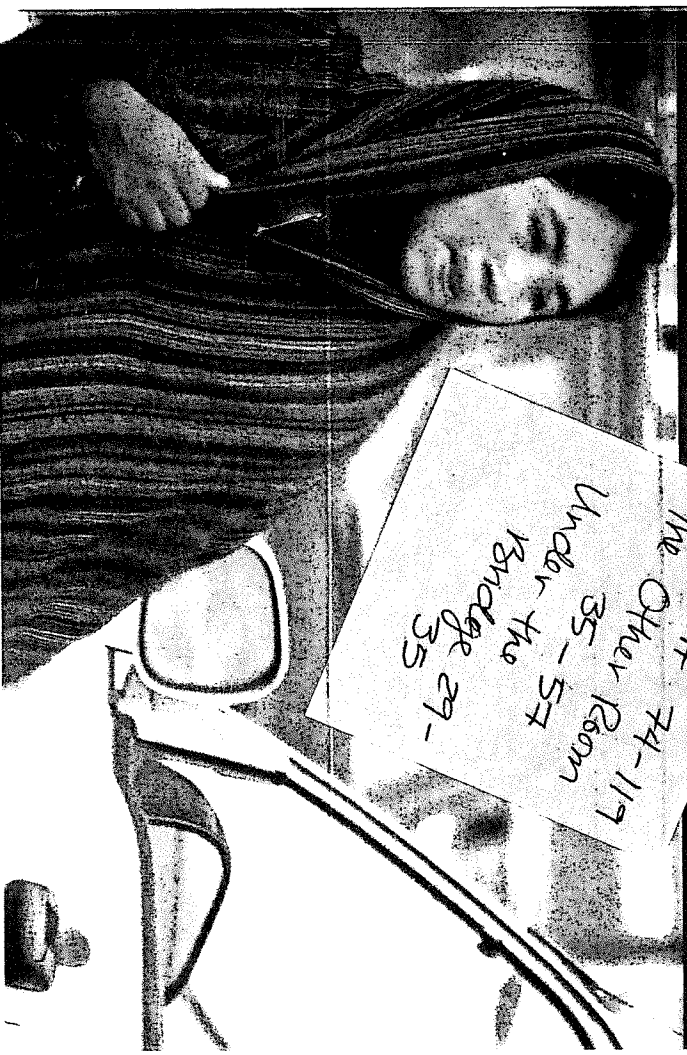 The
74-119
Other Room
35-57
Under the
Bridge 29-
35